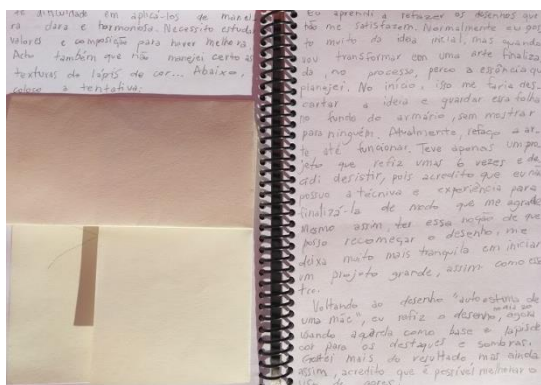 de dificuldade em aplicá-los de manei-
ra clara e harmoniosa. Necessito estudar
valores e composição para haver melhora.
Acho também que não manejei certo as
texturas do lápis de cor... Abaixo,
coloco a tentativa:
eu aprendi a refazer os desenhos que
não me satisfazem. Normalmente eu gos
to muito da ideia inicial, mas quando
vou transformar em uma arte finaliza
da, no processo, perco a essência que
planejei. No início, isso me faria des-
cartar a ideia e guardar essa folha
no fundo do armário, sem mostrar
para ninguém. Atualmente, refaço a ar-
te até funcionar. Teve apenas um pro
jeto que refiz umas 6 vezes e de
cidi desistir, pois acredito que eu não
possuo a técnica e experiência para
finalizá-la de modo que me agrade
Mesmo assim, ter essa noção de que
posso recomeçar o desenho, me
deixa muito mais tranquila em iniciar
um projeto grande, assim como es
tro.
Voltando ao desenho "autoestima de
uma mãe", eu refiz o desenho, agora
usando aquarela como base e lápis de
cor para os destaques e sombras.
Gostei mais do resultado, mas ainda
assim, acredito que é possível melhorar o
uso de cores.